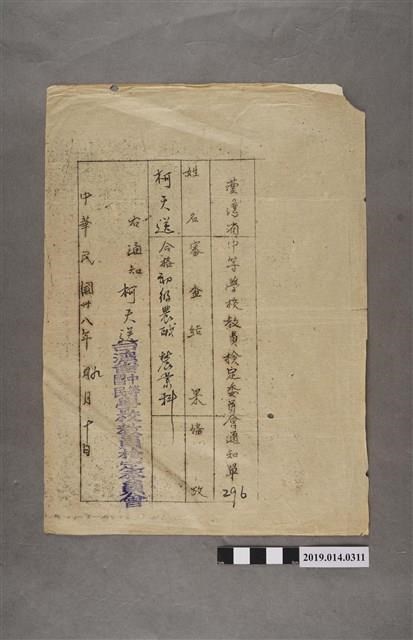 臺灣省中等學校教員檢定委員會通知單 296
姓名 審查結果 備攷
柯天送 合格初級農職 農業科
右通知柯天送
台灣省中等學校教員檢定委員會
中華民國卅八年 九月十日
2019.014.0311